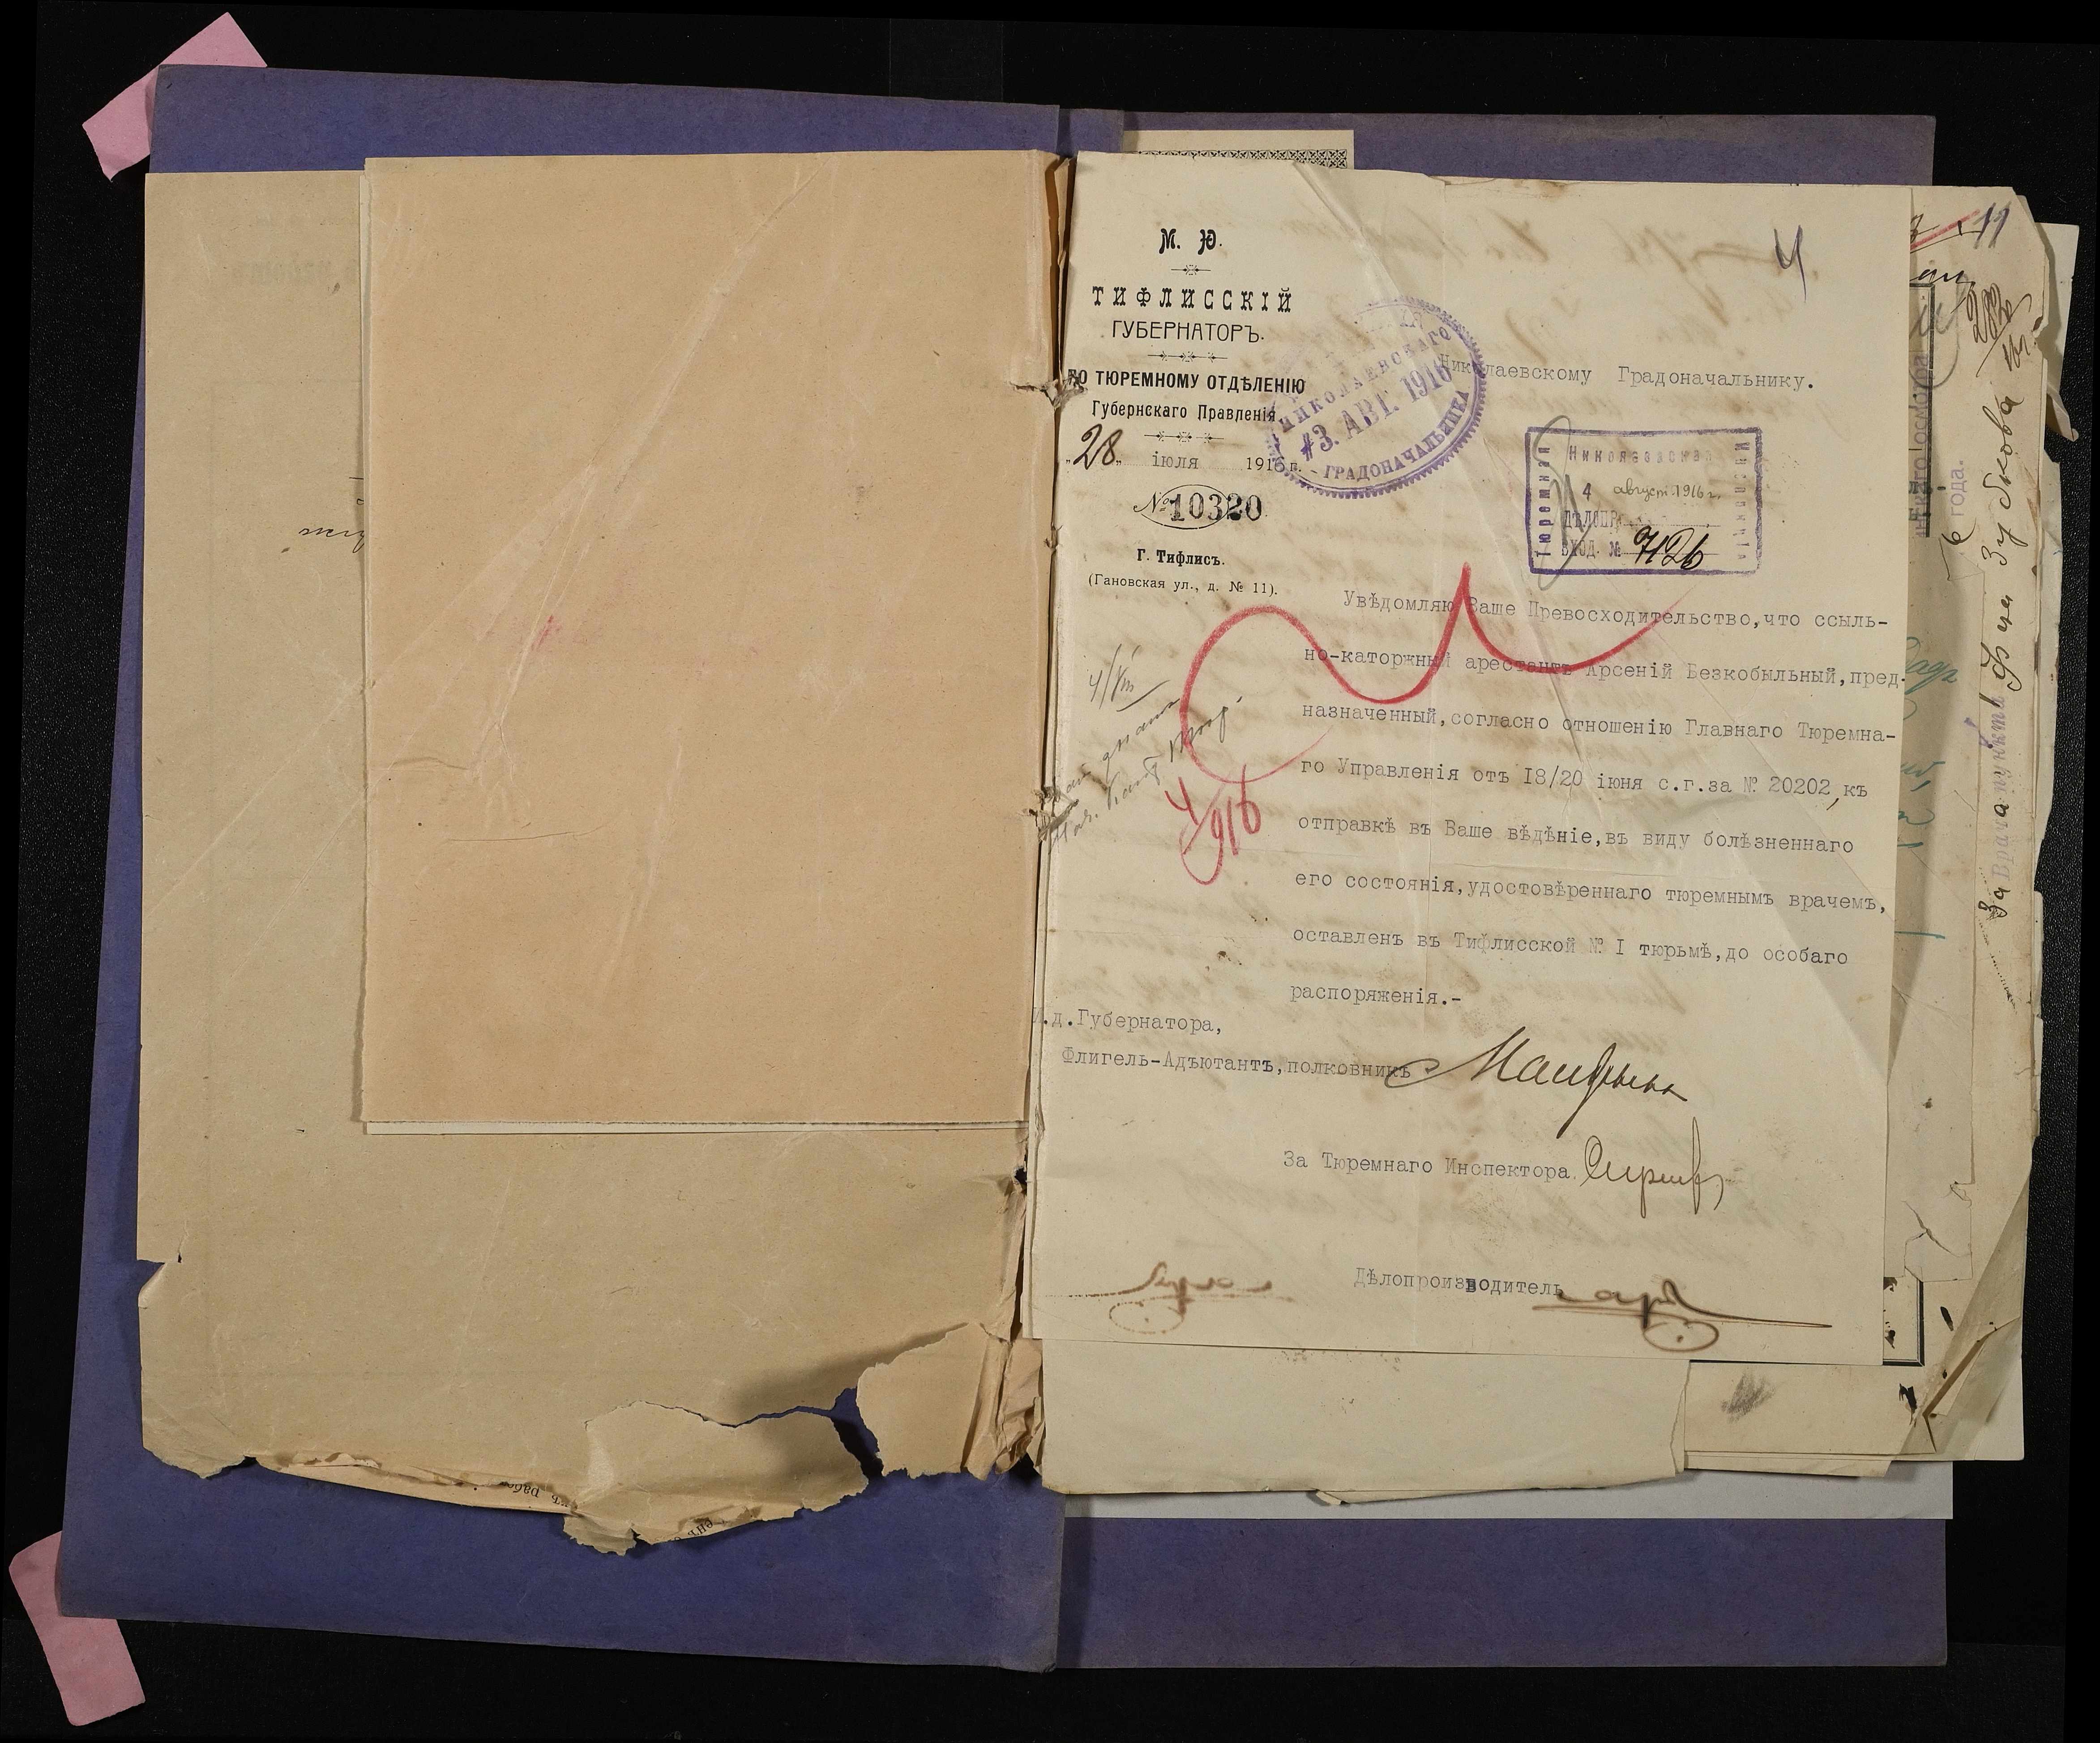 4
М. Ю.
ТИФЛИССКІЙ
ГУБЕРНАТОРЪ.
ПО ТЮРЕМНОМУ ОТДѢЛЕНІЮ
Губернскаго Правленія
„28„ іюля 1916 г.
№ 10320
Г. Тифлисъ.
(Гановская ул., д. № 11).
НИКОЛАЕВСКАГО
#3. АВГ. 1916
ГРАДОНАЧАЛЬНИКА
Николаевскому Градоначальнику.
Николаевская
Тюремная
Инспекція
4 август. 1916 г.
ДѢЛОПР.
ВХОД. № 7126
Увѣдомляю Ваше Превосходительство,что ссыль-
но-каторжный арестантъ Арсеній Безкобыльный,пред-
назначенный,согласно отношенію Главнаго Тюремна-
го Управленія отъ I8/20 іюня с.г.за № 20202,къ
отправкѣ въ Ваше вѣдѣніе,въ виду болѣзненнаго
его состоянія,удостовѣреннаго тюремнымъ врачемъ,
оставленъ въ Тифлисской № I тюрьмѣ,до особаго
распоряженія.-
И.д.Губернатора,
Флигель-Адъютантъ,полковникъ
За Тюремнаго Инспектора
Дѣлопроизводитель
4/VIII
4/916
11
года.
За Врача пункта
Зубкова